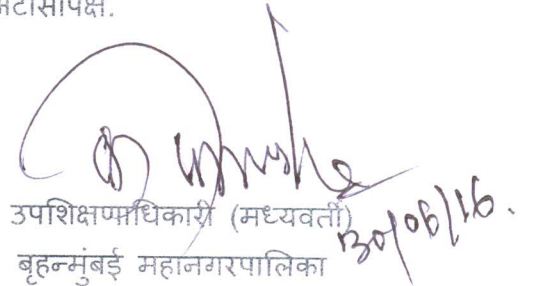 उपशिक्षणाधिकारी (मध्यवर्ती)
30/06/16.
बृहन्मुंबई महानगरपालिका